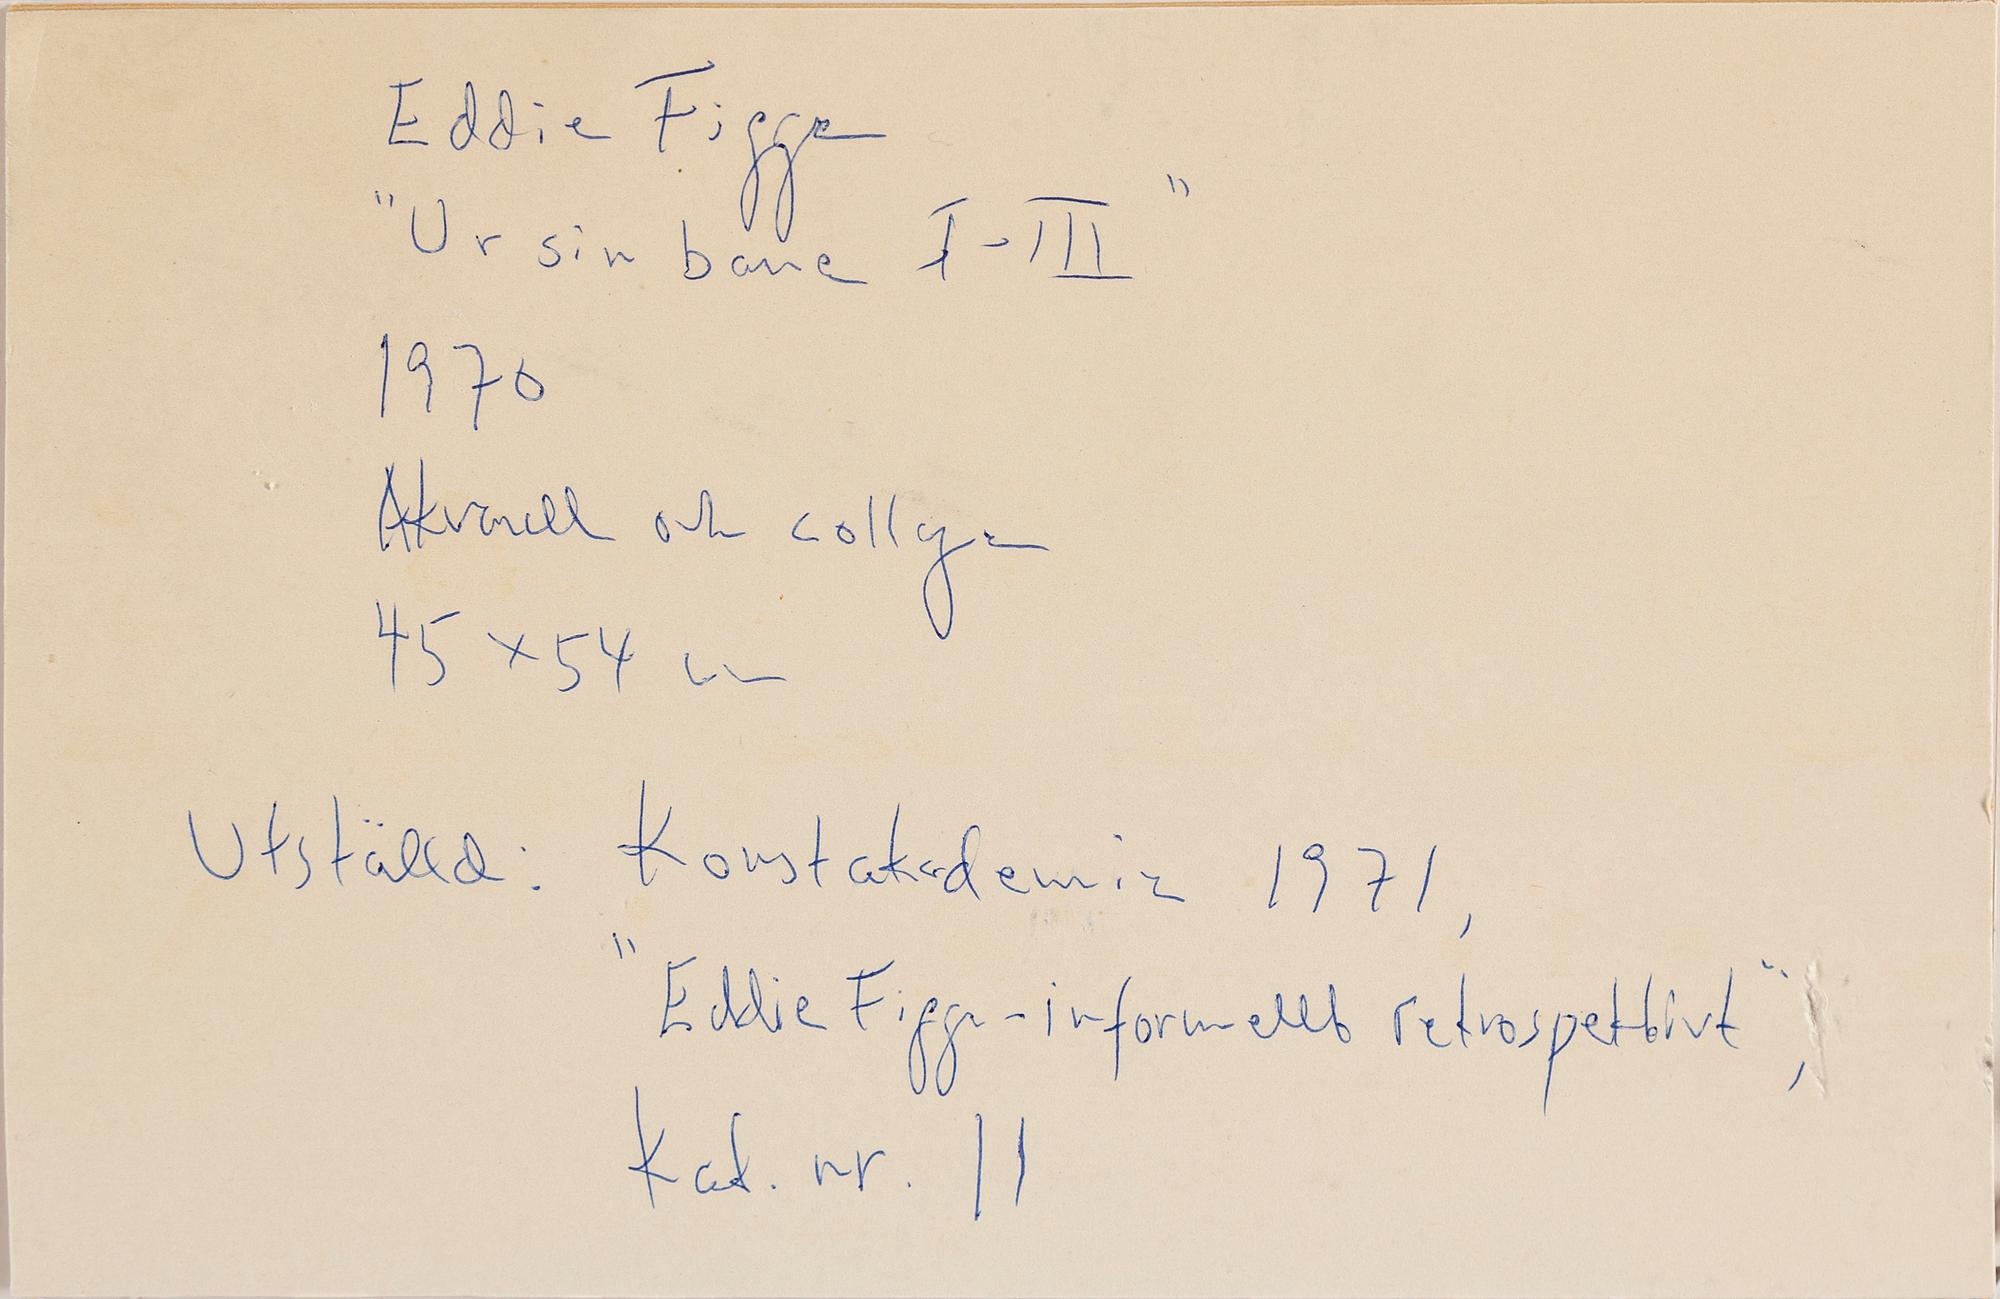 Eddie Figge
"Ur sin bana I-III"
1970
Akvarell och collage
45 x 54 cm
Utställd: Konstakademin 1971,
"Eddie Figge-informellt retrospektivt",
Kat. nr. 11